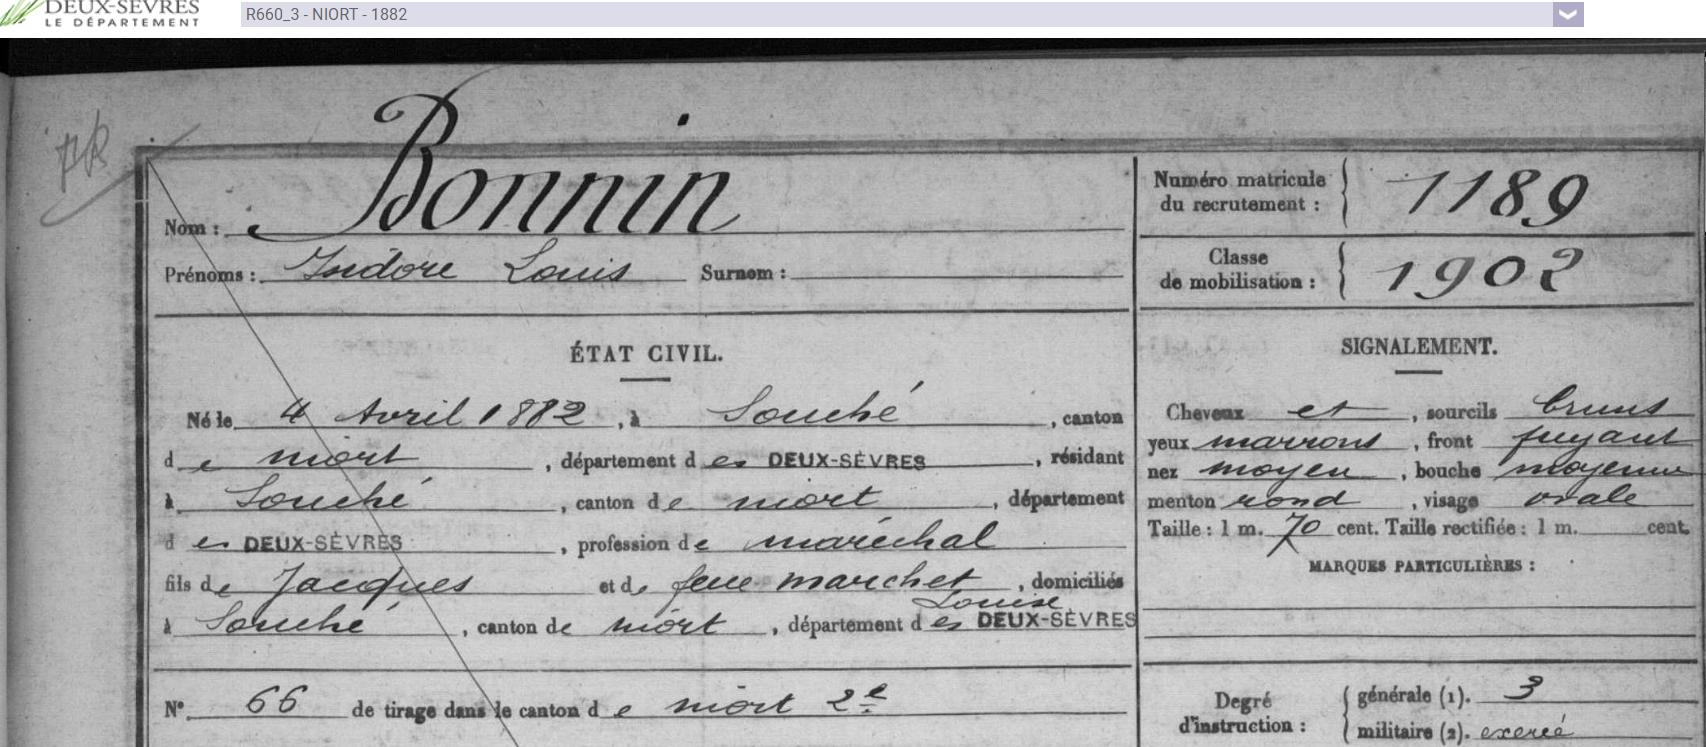 DEUX-SÈVRES
LE DÉPARTEMENT
R660_3 - NIORT - 1882
Nom : Bonnin
Prénoms : Isidore Louis Surnom :
Numéro matricule
du recrutement : 1189
Classe
de mobilisation : 1902
ÉTAT CIVIL.
Né le 4 Avril 1882, à Souché, canton
de niort, département des DEUX-SÈVRES, résidant
à Souché, canton de niort, département
des DEUX-SÈVRES, profession de maréchal
fils de Jacques et de feue marchet, domiciliés
Louise
à Souché, canton de niort, département des DEUX-SÈVRES
N° 66 de tirage dans le canton de niort 2e
SIGNALEMENT.
Cheveux et, sourcils bruns
yeux marrons, front fuyant
nez moyen, bouche moyenne
menton rond, visage ovale
Taille : 1 m. 70 cent. Taille rectifiée : 1 m. cent.
MARQUES PARTICULIÈRES :
Degré
d'instruction :
générale (1). 3
militaire (2). exercé